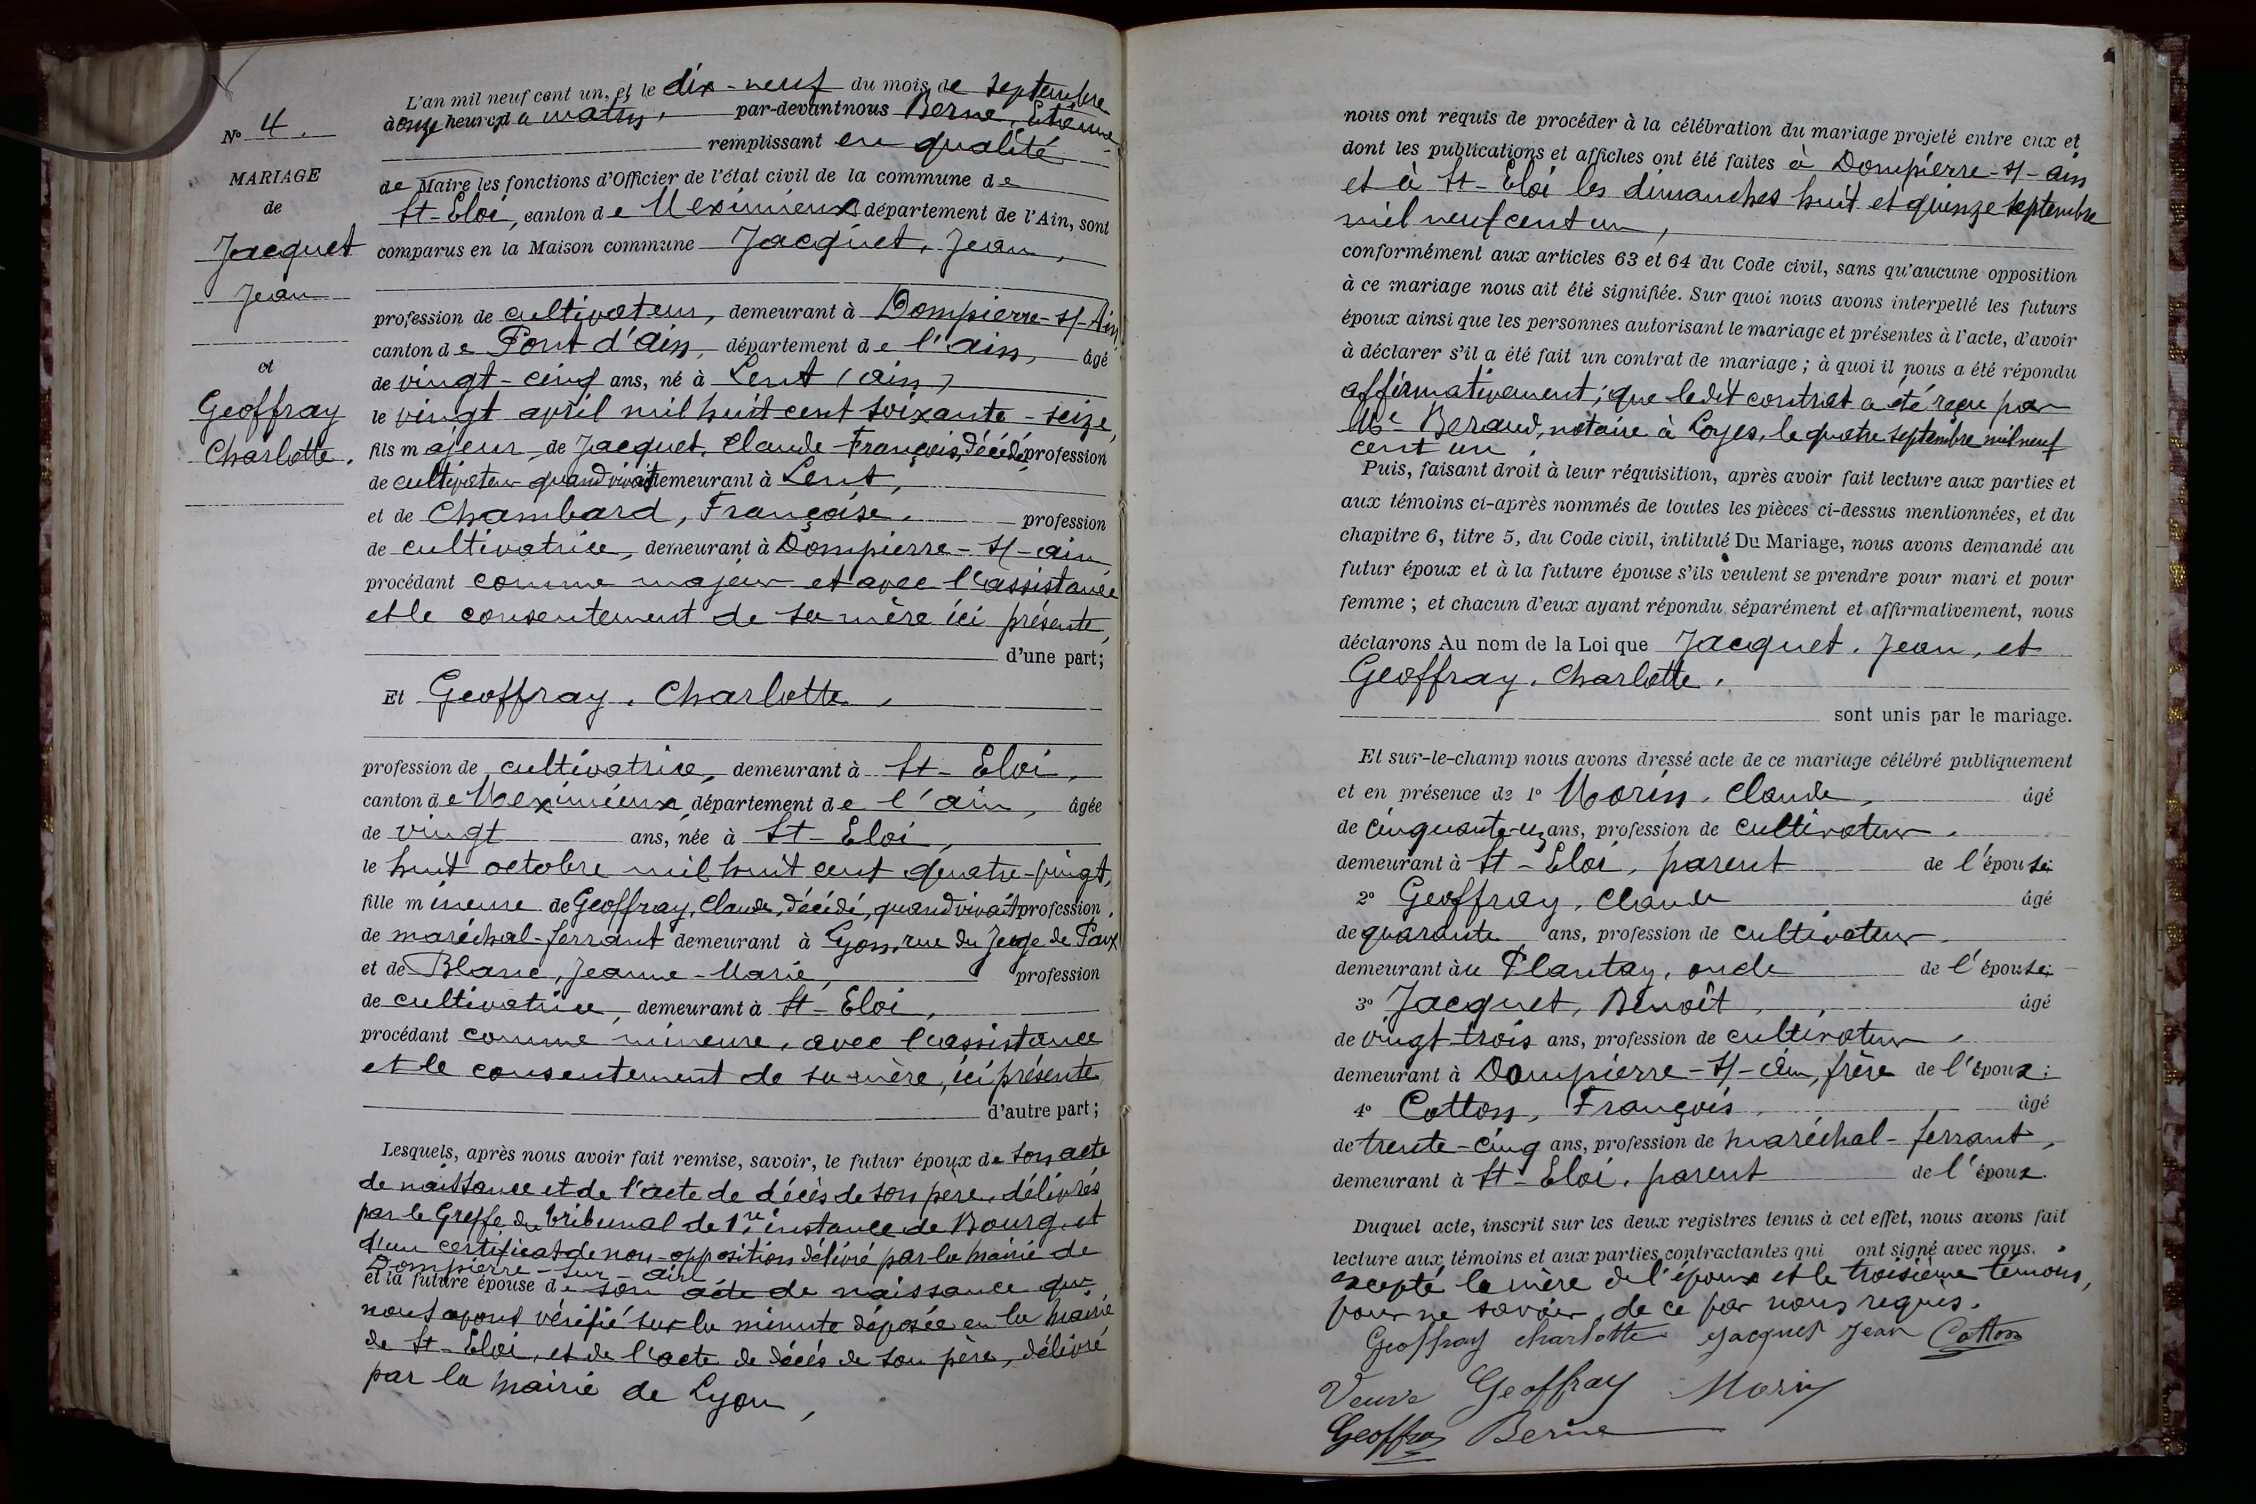 L'an mil neuf cent un, et le dix-neuf du mois de septembre
à onze heures du matin, par-devant nous Berne, Etienne
remplissant en qualité
de Maire les fonctions d'Officier de l'état civil de la commune de
St-Eloi, canton de Meximieux département de l'Ain, sont
comparus en la Maison commune Jacquet, Jean,
profession de cultivateur, demeurant à Dompierre-s/-Ain,
canton de Pont d'Ain, département de l'Ain, âgé
de vingt-cinq ans, né à Lent (Ain)
le vingt avril mil huit cent soixante-seize,
fils majeur de Jacquet, Claude-François, décédé, profession
de cultivateur quand vivait demeurant à Lent,
et de Chambard, Françoise, profession
de cultivatrice, demeurant à Dompierre-s/-Ain,
procédant comme majeur et avec l'assistance
et le consentement de sa mère ici présente,
d'une part;
Et Geoffray, Charlotte,
profession de cultivatrice, demeurant à St-Eloi,
canton de Meximieux, département de l'Ain, âgée
de vingt ans, née à St-Eloi,
le huit octobre mil huit cent quatre-vingt,
fille mineure de Geoffray, Claude, décédé, quand vivait profession
de maréchal-ferrant demeurant à Lyon, rue du Juge de Paix
et de Blanc, Jeanne-Marie, profession
de cultivatrice, demeurant à St-Eloi,
procédant comme mineure, avec l'assistance
et le consentement de sa mère, ici présente
d'autre part;
Lesquels, après nous avoir fait remise, savoir, le futur époux de son acte
de naissance et de l'acte de décès de son père, délivrés
par le Greffe du tribunal de 1re instance de Bourg, et
d'un certificat de non-opposition délivré par la mairie de
Dompierre-sur-Ain
et la future épouse de son acte de naissance que
nous avons vérifié sur la minute déposée en la mairie
de St-Eloi, et de l'acte de décès de son père, délivré
par la mairie de Lyon,
N° 4.
MARIAGE
de
Jacquet
Jean
et
Geoffray
Charlotte.
nous ont requis de procéder à la célébration du mariage projeté entre eux et
dont les publications et affiches ont été faites à Dompierre-s/-Ain
et à St-Eloi les dimanches huit et quinze septembre
mil neuf cent un,
conformément aux articles 63 et 64 du Code civil, sans qu'aucune opposition
à ce mariage nous ait été signifiée. Sur quoi nous avons interpellé les futurs
époux ainsi que les personnes autorisant le mariage et présentes à l'acte, d'avoir
à déclarer s'il a été fait un contrat de mariage; à quoi il nous a été répondu
affirmativement; que ledit contrat a été reçu par
Me Beraud, notaire à Loyes, le quatre septembre mil neuf
cent un.
Puis, faisant droit à leur réquisition, après avoir fait lecture aux parties et
aux témoins ci-après nommés de toutes les pièces ci-dessus mentionnées, et du
chapitre 6, titre 5, du Code civil, intitulé Du Mariage, nous avons demandé au
futur époux et à la future épouse s'ils veulent se prendre pour mari et pour
femme; et chacun d'eux ayant répondu séparément et affirmativement, nous
déclarons Au nom de la Loi que Jacquet, Jean, et
Geoffray, Charlotte,
sont unis par le mariage.
Et sur-le-champ nous avons dressé acte de ce mariage célébré publiquement
et en présence de 1° Morin, Claude, âgé
de cinquante-un ans, profession de cultivateur,
demeurant à St-Eloi, parent de l'épouse;
2° Geoffray, Claude âgé
de quarante ans, profession de cultivateur
demeurant au Plantay, oncle de l'épouse;
3° Jacquet, Benoît, âgé
de vingt-trois ans, profession de cultivateur,
demeurant à Dompierre-s/-Ain, frère de l'époux;
4° Cotton, François, âgé
de trente-cinq ans, profession de maréchal-ferrant,
demeurant à St-Eloi, parent de l'époux.
Duquel acte, inscrit sur les deux registres tenus à cet effet, nous avons fait
lecture aux témoins et aux parties contractantes qui ont signé avec nous.
excepté la mère de l'époux et le troisième témoin,
pour ne savoir, de ce par nous requis.
Geoffray Charlotte Jacquet Jean Cotton
Veuve Geoffray Morin
Geoffray Berne